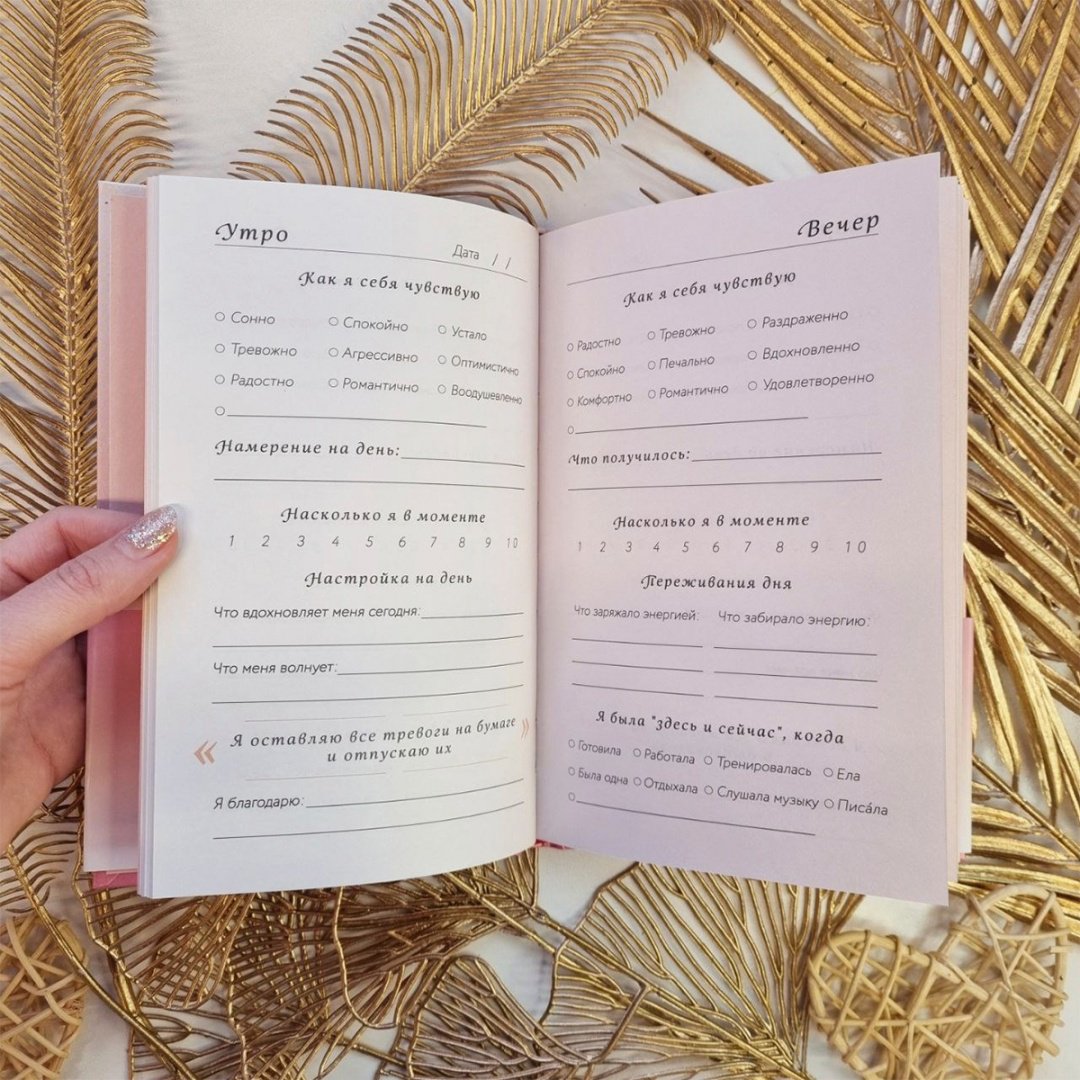 Утро
Дата / /
Как я себя чувствую
Сонно Спокойно Устало
Тревожно Агрессивно Оптимистично
Радостно Романтично Воодушевленно
Намерение на день:
Насколько я в моменте
1 2 3 4 5 6 7 8 9 10
Настройка на день
Что вдохновляет меня сегодня:
Что меня волнует:
« Я оставляю все тревоги на бумаге »
и отпускаю их
Я благодарю:
Вечер
Как я себя чувствую
Радостно Тревожно Раздраженно
Спокойно Печально Вдохновленно
Комфортно Романтично Удовлетворенно
Что получилось:
Насколько я в моменте
1 2 3 4 5 6 7 8 9 10
Переживания дня
Что заряжало энергией: Что забирало энергию:
Я была "здесь и сейчас", когда
Готовила Работала Тренировалась Ела
Была одна Отдыхала Слушала музыку Писáла